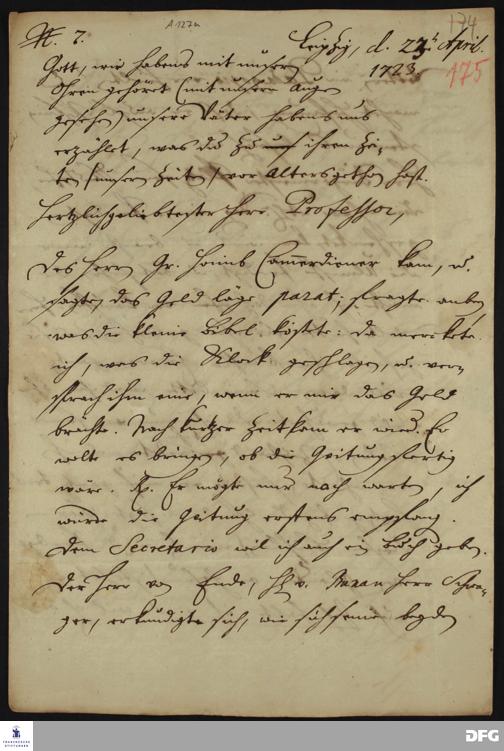 A 127a
174
N. 7. Leipzig, d. 23. April.
1723.
175
Gott, wir habens mit unsern
Ohren gehöret (mit unsern Augen
gesehen) unsere Väter habens uns
erzählet, was du zu ihren Zei-
ten / unsern Zeiten / vor Alters gethan hast.
Hertzlichgeliebtester Herr Professor,
Des Herrn Gr. Cammerdiener kam, u.
sagte, das Geld läge parat; fragte anbey
was die kleine Bibel kostete: da merckete
ich, was die Klock geschlagen, u. ver-
sprach ihm eine, wenn er mir das Geld
brächte. Nach kurtzer Zeit kam er wied. Er
wolte es bringen, ob die Qvitung fertig
wäre. Rx. Er mögte nur noch warten, ich
würde die Qvitung erstens empfang.
Dem Secretario wil ich auch ein Buch geben.
Der Herr von Ende, H. v. Herr Schwa-
ger, erkundigte sich, wie sich seine beyden
FRANCKESCHE STIFTUNGEN
DFG